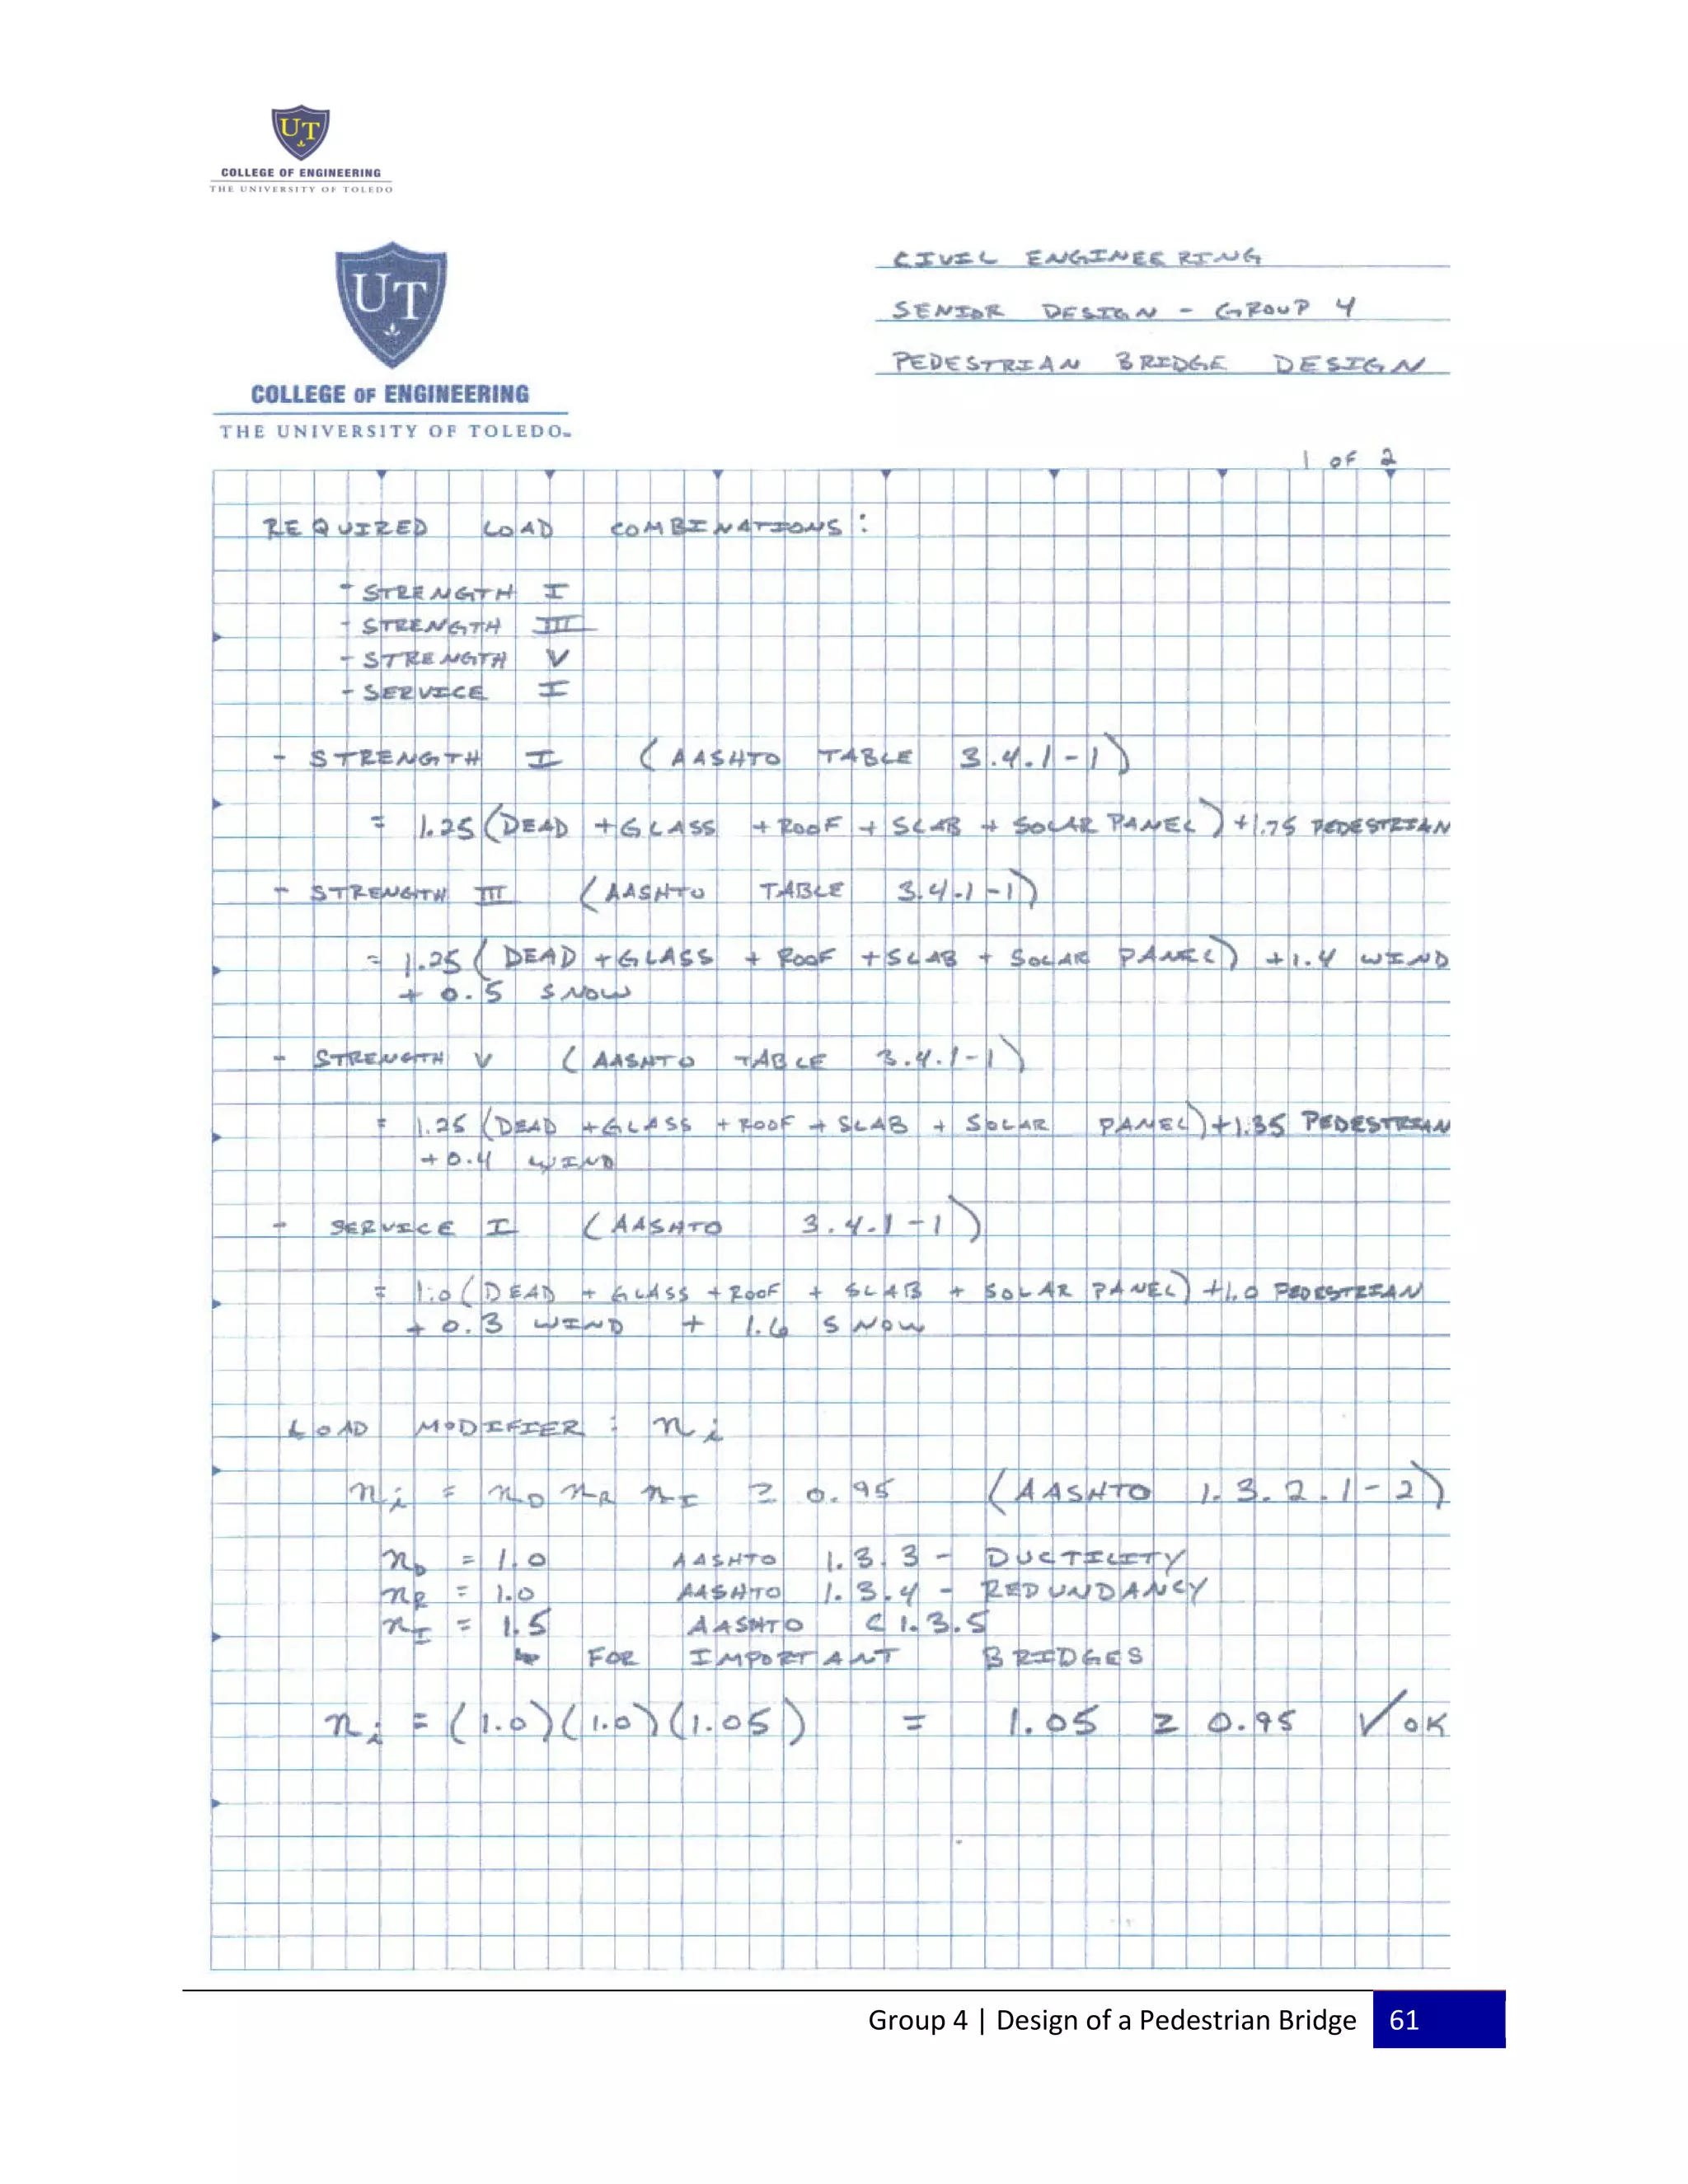 UT
COLLEGE OF ENGINEERING
THE UNIVERSITY OF TOLEDO
UT
COLLEGE OF ENGINEERING
THE UNIVERSITY OF TOLEDO™
CIVIL ENGINEERING
SENIOR DESIGN - GROUP 4
PEDESTRIAN BRIDGE DESIGN
1 OF 2
REQUIRED LOAD COMBINATIONS:
- STRENGTH I
- STRENGTH III
- STRENGTH V
- SERVICE I
- STRENGTH I (AASHTO TABLE 3.4.1-1)
= 1.25 (DEAD + GLASS + ROOF + SLAB + SOLAR PANEL) + 1.75 PEDESTRIAN
- STRENGTH III (AASHTO TABLE 3.4.1-1)
= 1.25 (DEAD + GLASS + ROOF + SLAB + SOLAR PANEL) + 1.4 WIND
+ 0.5 SNOW
- STRENGTH V (AASHTO TABLE 3.4.1-1)
= 1.25 (DEAD + GLASS + ROOF + SLAB + SOLAR PANEL) + 1.35 PEDESTRIAN
+ 0.4 WIND
- SERVICE I (AASHTO 3.4.1-1)
= 1.0 (DEAD + GLASS + ROOF + SLAB + SOLAR PANEL) + 1.0 PEDESTRIAN
+ 0.3 WIND + 1.6 SNOW
LOAD MODIFIER : n i
n i = n D n R n I ≥ 0.95 (AASHTO 1.3.2.1-2)
n D = 1.0 AASHTO 1.3.3 - DUCTILITY
n R = 1.0 AASHTO 1.3.4 - REDUNDANCY
n I = 1.5 AASHTO C 1.3.5
↳ FOR IMPORTANT BRIDGES
n i = (1.0)(1.0)(1.05) = 1.05 ≥ 0.95 ✓ OK
Group 4 | Design of a Pedestrian Bridge 61